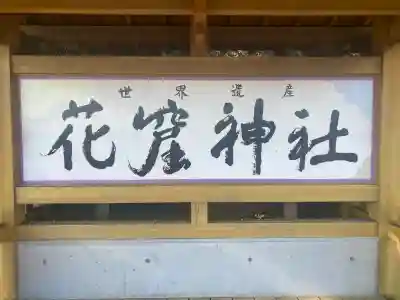 世界遺産
花窟神社